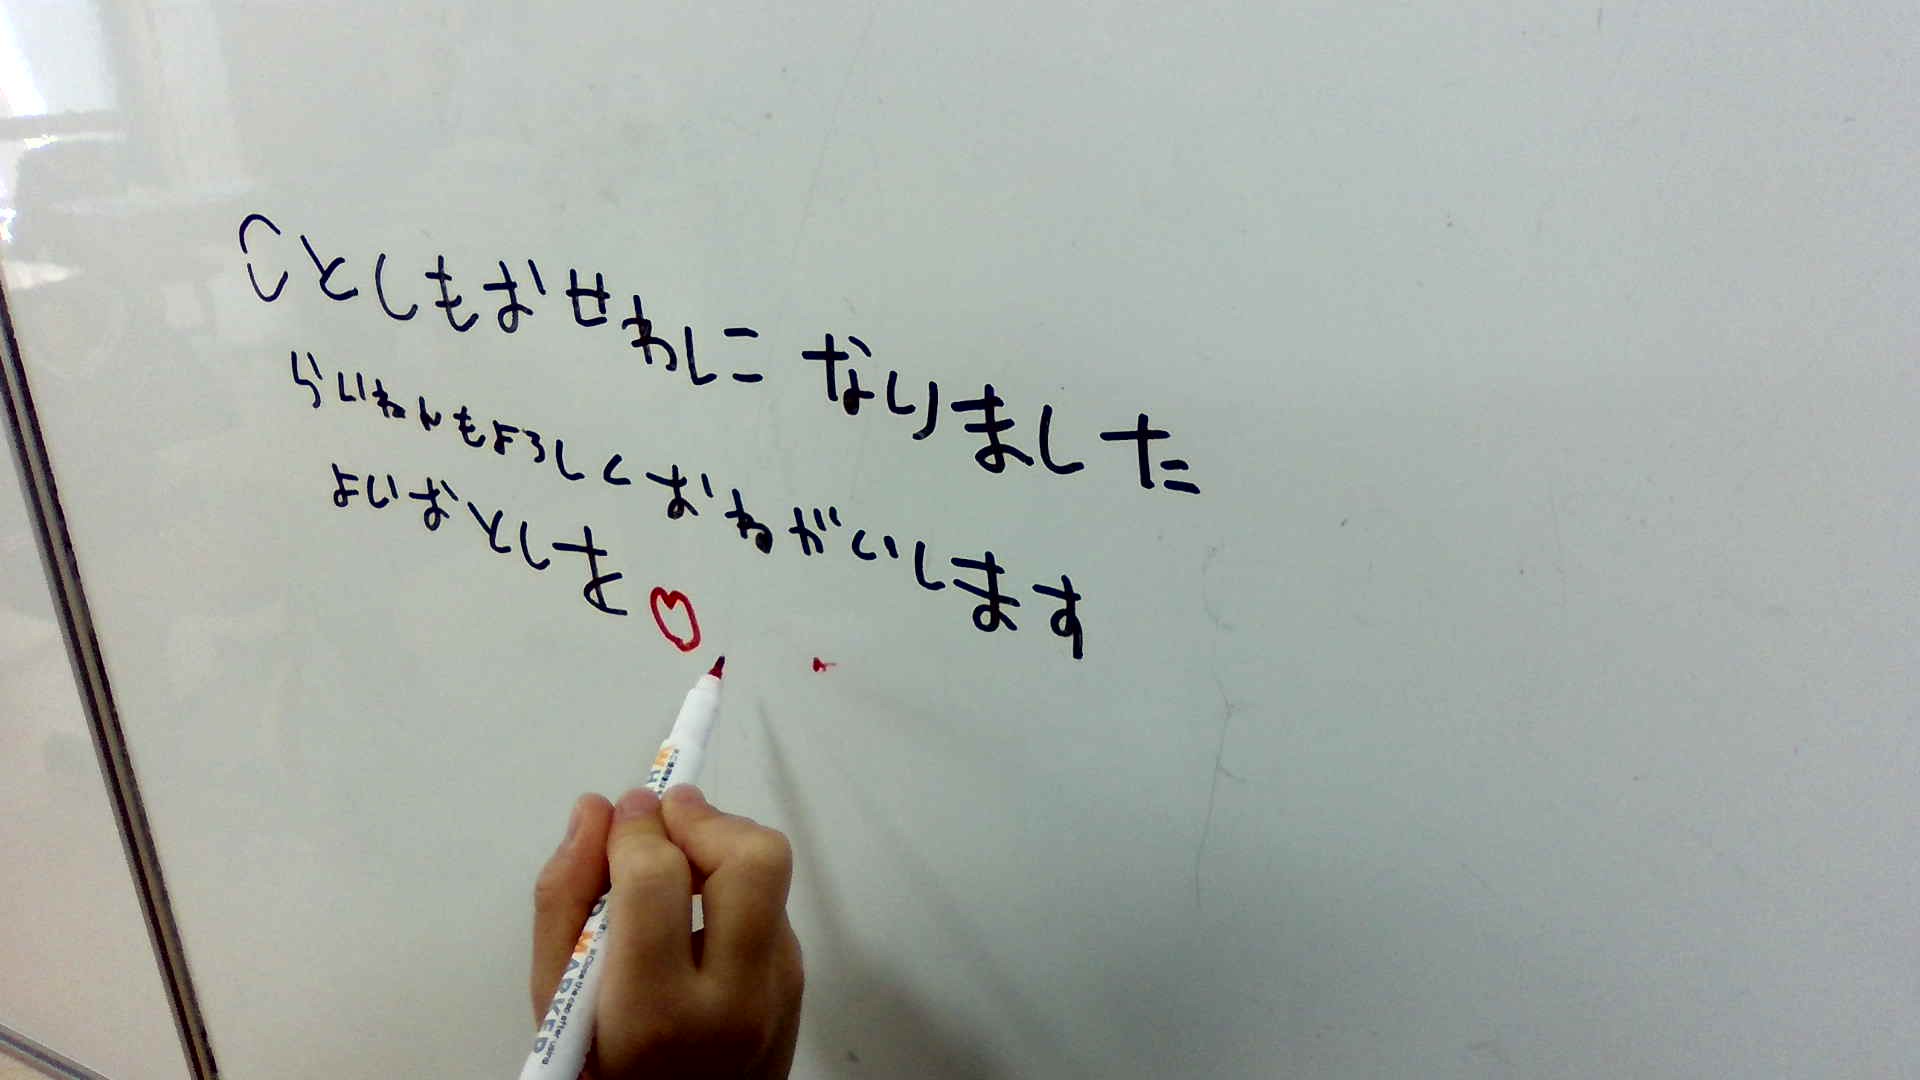 ことしもおせわになりました
らいねんもよろしくおねがいします
よいおとしを♡